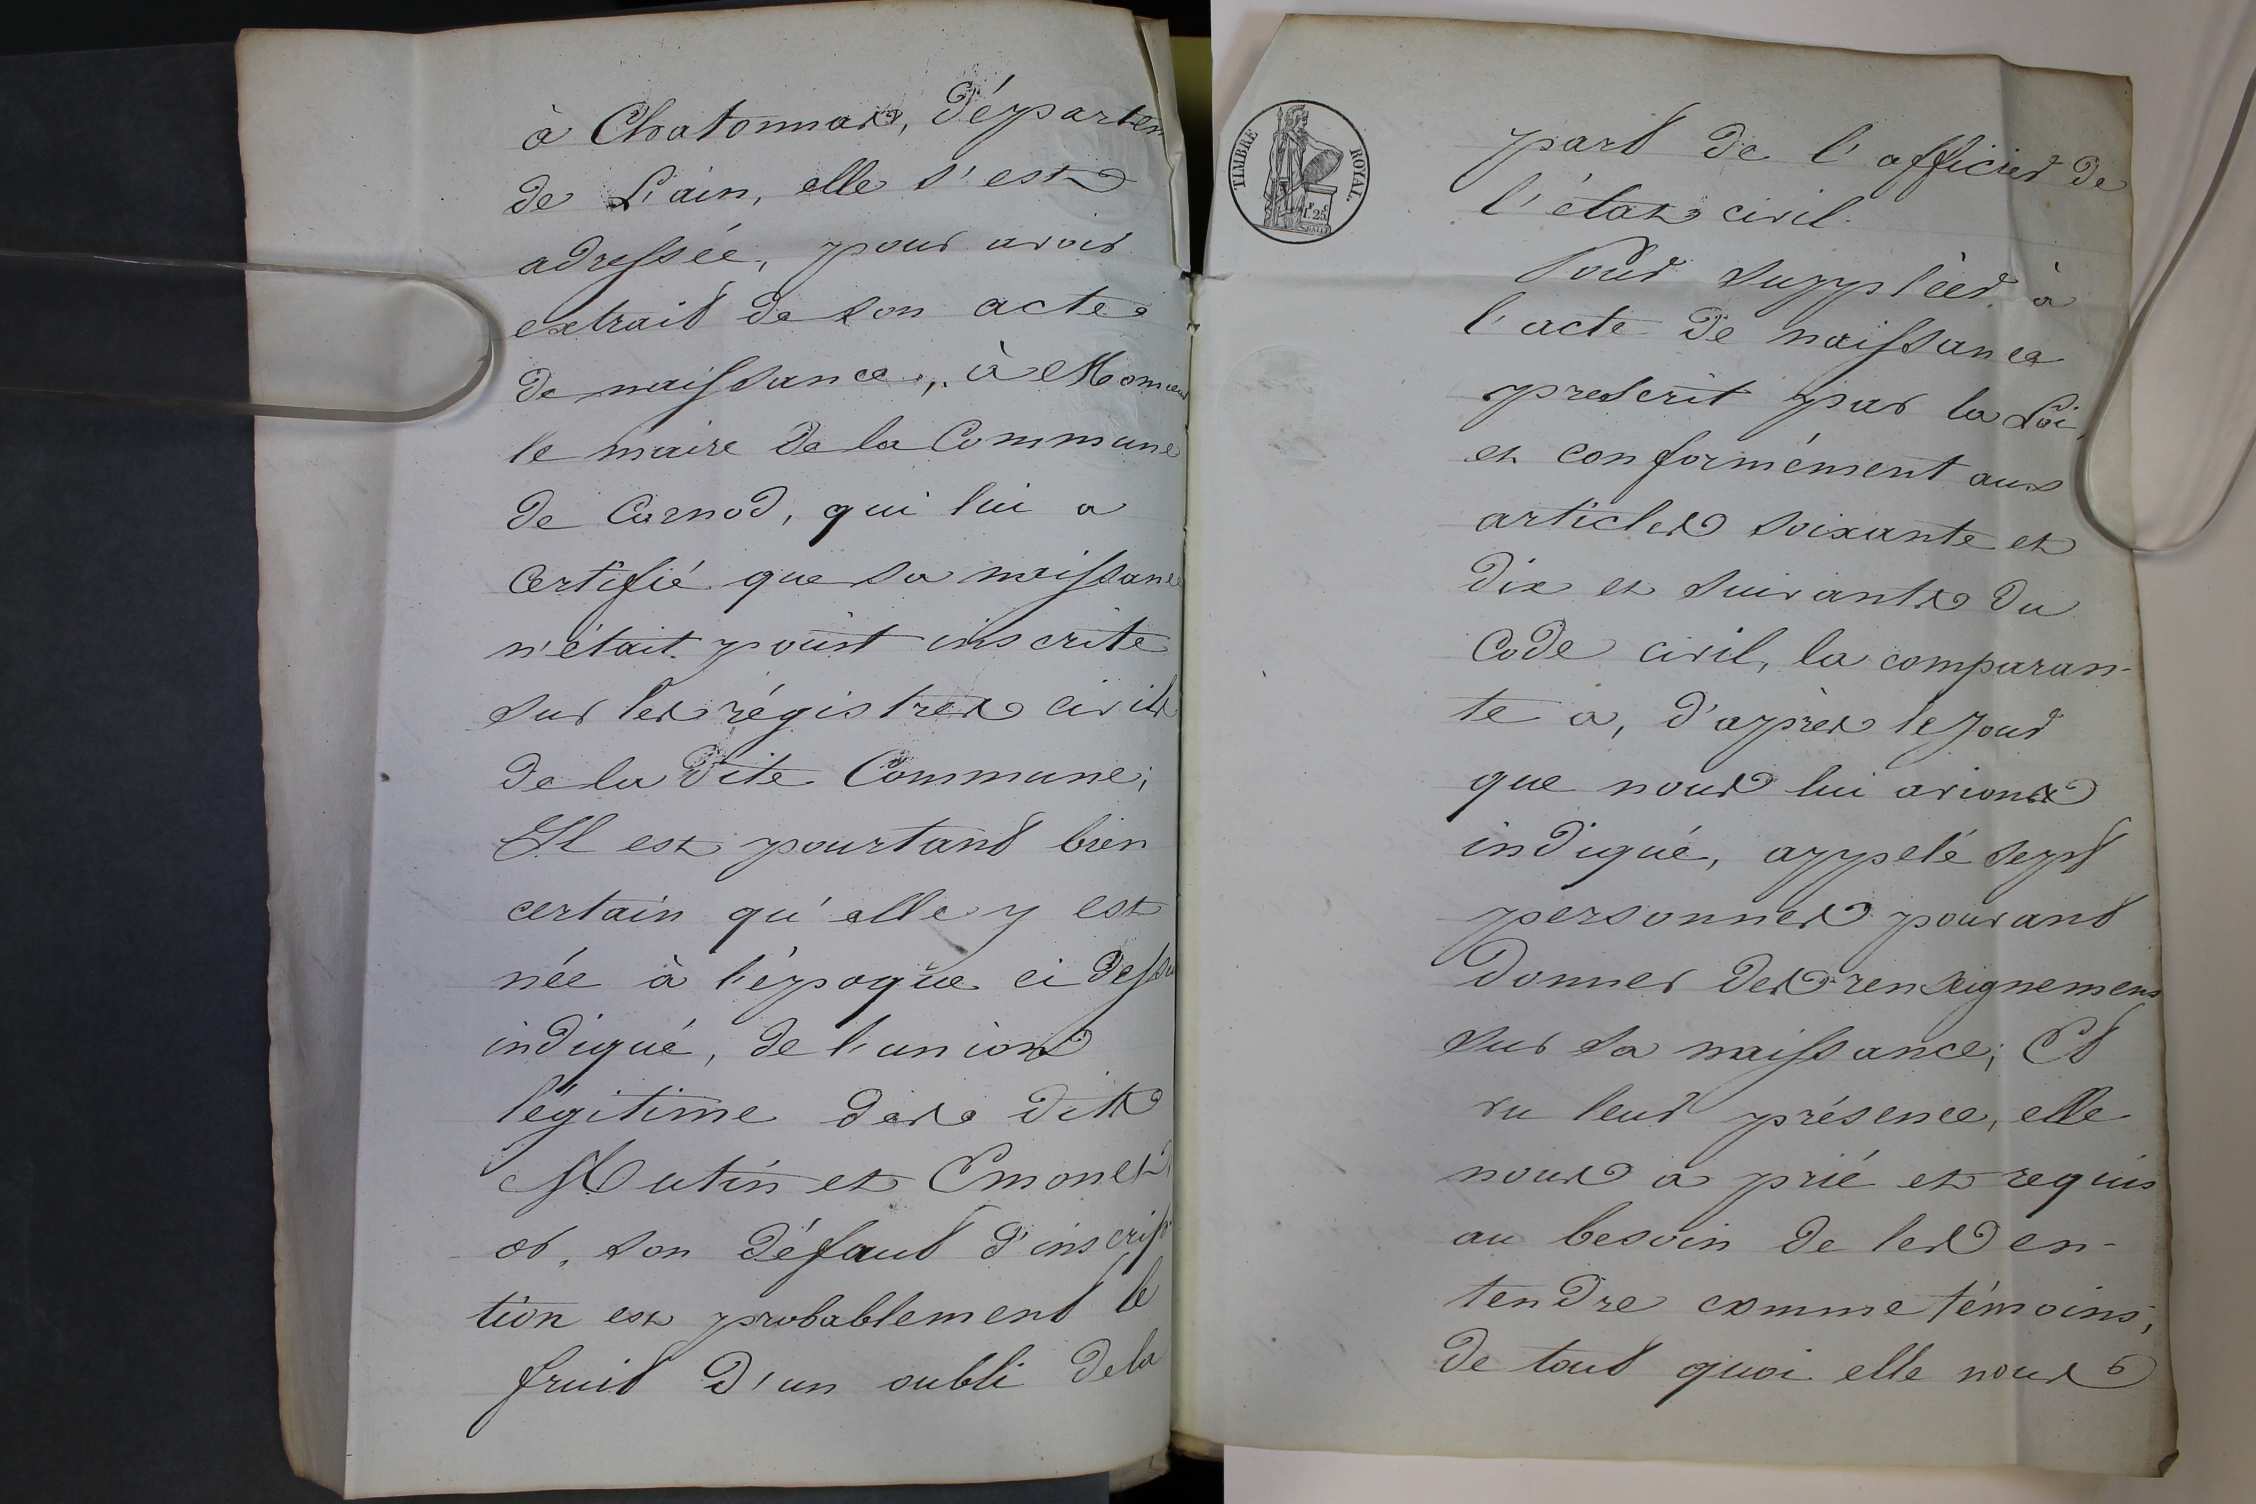 à Chatonnax, Départem
de L'ain, elle s'est
adressée, pour avoir
extrait de son acte
de naissance, à Monsieur
le maire de la Commune
de Carnod, qui lui a
Certifié que sa naissance
n'était point inscrite
sur les régistres civils
de la dite Commune;
Il est pourtant bien
certain qu'elle y est
née à l'époque ci dessu
indiqué, de l'union
légitime des dits
Mutin et Emonet
or, son défaut d'inscrip
tion est probablement le
fruit d'un oubli de la
TIMBRE ROYAL
part de l'officier de
l'état civil.
Pour suppléer à
l'acte de naissance
prescrit par la Loi,
et conformément aux
articles soixante et
dix et suivants du
Code civil, la comparan-
te a, d'après le jour
que nous lui avions
indiqué, appelé sept
personnes pouvant
donner des renseignemens
sur sa naissance; Et
vu leur présence, elle
nous a prié et requis
au besoin de les en-
tendre comme témoins;
de tout quoi elle nous